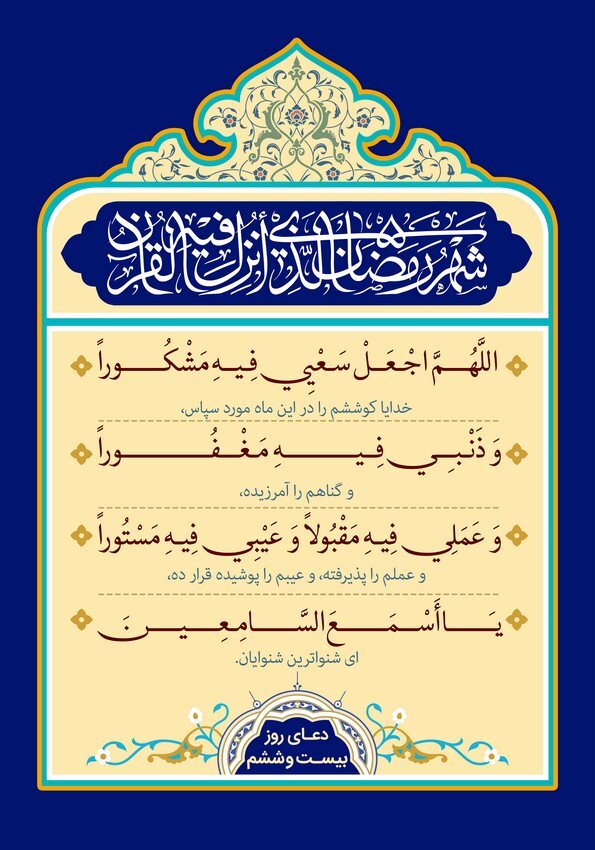 شَهْرُ رَمَضَانَ الَّذِي أُنْزِلَ فِيهِ الْقُرْآنُ
اللَّهُمَّ اجْعَلْ سَعْيِي فِيهِ مَشْكُوراً
خدایا کوششم را در این ماه مورد سپاس،
وَ ذَنْبِي فِيهِ مَغْفُوراً
و گناهم را آمرزیده،
وَ عَمَلِي فِيهِ مَقْبُولاً وَ عَيْبِي فِيهِ مَسْتُوراً
و عملم را پذیرفته، و عیبم را پوشیده قرار ده،
يَا أَسْمَعَ السَّامِعِينَ
ای شنواترین شنوایان.
دعای روز
بیست وششم